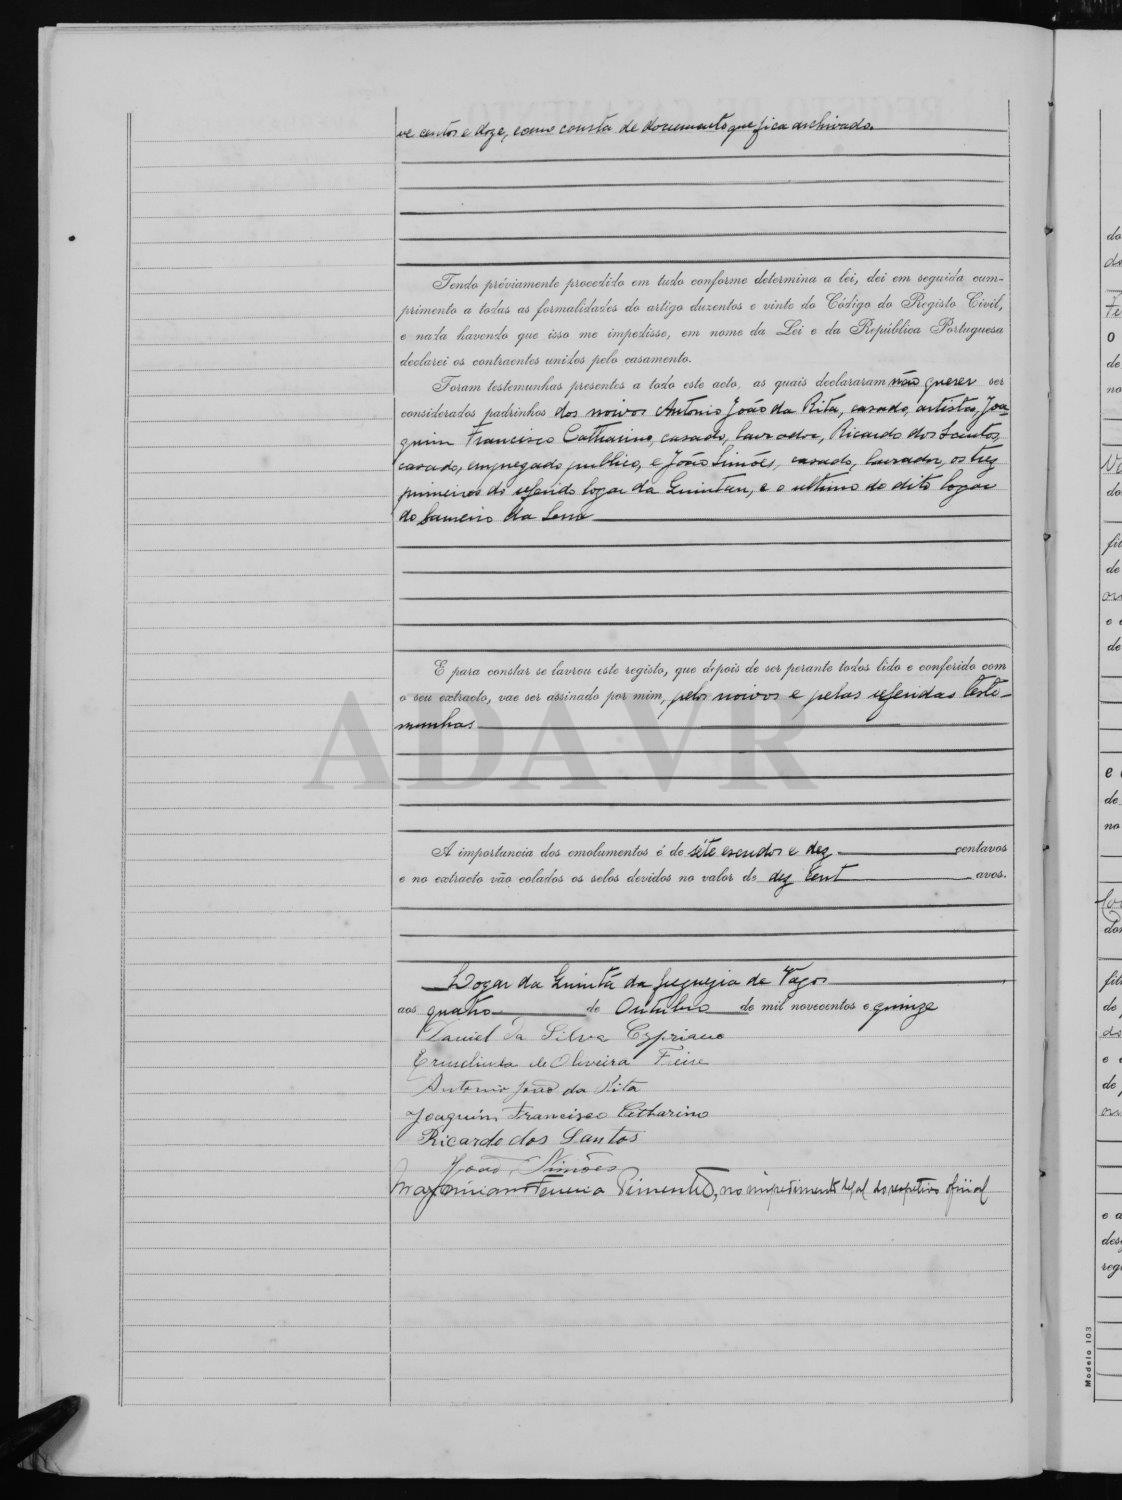 ve centos e doze, como consta de documento que fica archivado.
Tendo préviamente procedido em tudo conforme determina a lei, dei em seguida cum-
primento a todas as formalidades do artigo duzentos e vinte do Código do Registo Civil,
e nada havendo que isso me impedisse, em nome da Lei e da República Portuguesa
declarei os contraentes unidos pelo casamento.
Foram testemunhas presentes a todo este acto, as quais declararam não querer ser
considerados padrinhos dos noivos Antonio João da Rita, casado, artista, Joa-
quim Francisco Catharino, casado, lavrador, Ricardo dos Santos,
casado, empregado publico, e João Simões, casado, lavrador, os trez
primeiros do referido logar da Quintan, e o ultimo do dito logar
do da
E para constar se lavrou este registo, que depois de ser perante todos lido e conferido com
o seu extracto, vae ser assinado por mim, pelos noivos e pelas referidas teste-
munhas
A importancia dos emolumentos é de sete escudos e dez centavos
e no extracto vão colados os selos devidos no valor de dez cent avos.
Logar da Quintã da freguezia de Vagos
aos quatro de Outubro de mil novecentos e quinze
Daniel da Silva Cypriano
Ermelinda de Oliveira Freire
Antonio João da Rita
Joaquim Francisco Catharino
Ricardo dos Santos
João Simões
Ferreira Pimentel, no impedimento legal do respetivo oficial
ADAVR
Modelo 103